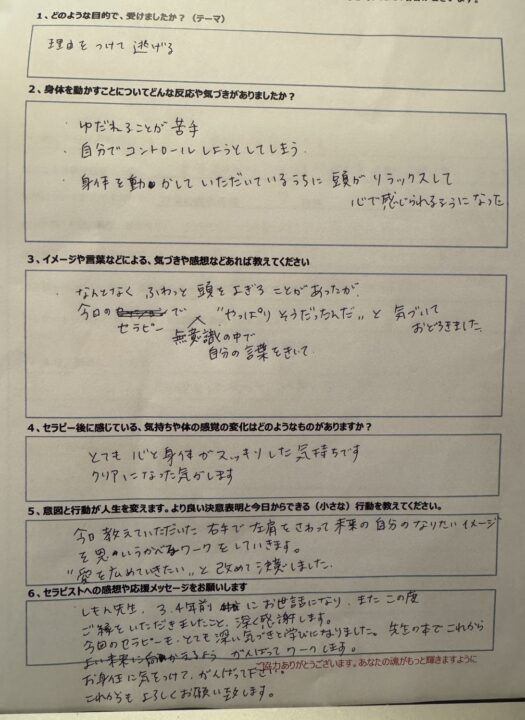 1、どのような目的で、受けましたか？（テーマ）
理由をつけて逃げる
2、身体を動かすことについてどんな反応や気づきがありましたか？
・ゆだねることが苦手
・自分でコントロールしようとしてしまう
・身体を動かしていただいているうちに頭がリラックスして
心で感じられるようになった
3、イメージや言葉などによる、気づきや感想などあれば教えてください
・なんとなく ふわっと頭をよぎることがあったが、
今日の で “やっぱりそうだったんだ” と気づいて
セラピー 無意識の中で おどろきました。
自分の言葉をきいて
4、セラピー後に感じている、気持ちや体の感覚の変化はどのようなものがありますか？
とても心と身体がスッキリした気持ちです
クリアになった気がします
5、意図と行動が人生を変えます。より良い決意表明と今日からできる（小さな）行動を教えてください。
今日教えていただいた右手で左肩をさわって未来の自分のなりたいイメージ
を思いうかべるワークをしていきます。
“愛を広めていきたい” と改めて決意しました。
6、セラピストへの感想や応援メッセージをお願いします
しもん先生、3、4年前 にお世話になり、またこの度
ご縁をいただきましたこと、深く感謝します。
今回のセラピーも、とても深い気づきと学びになりました。先生の本でこれから
よい未来に向かえるよう がんばってワークします。
ご協力ありがとうございます。あなたの魂がもっと輝きますように
お身体に気をつけて、がんばって下さい。
これからもよろしくお願い致します。